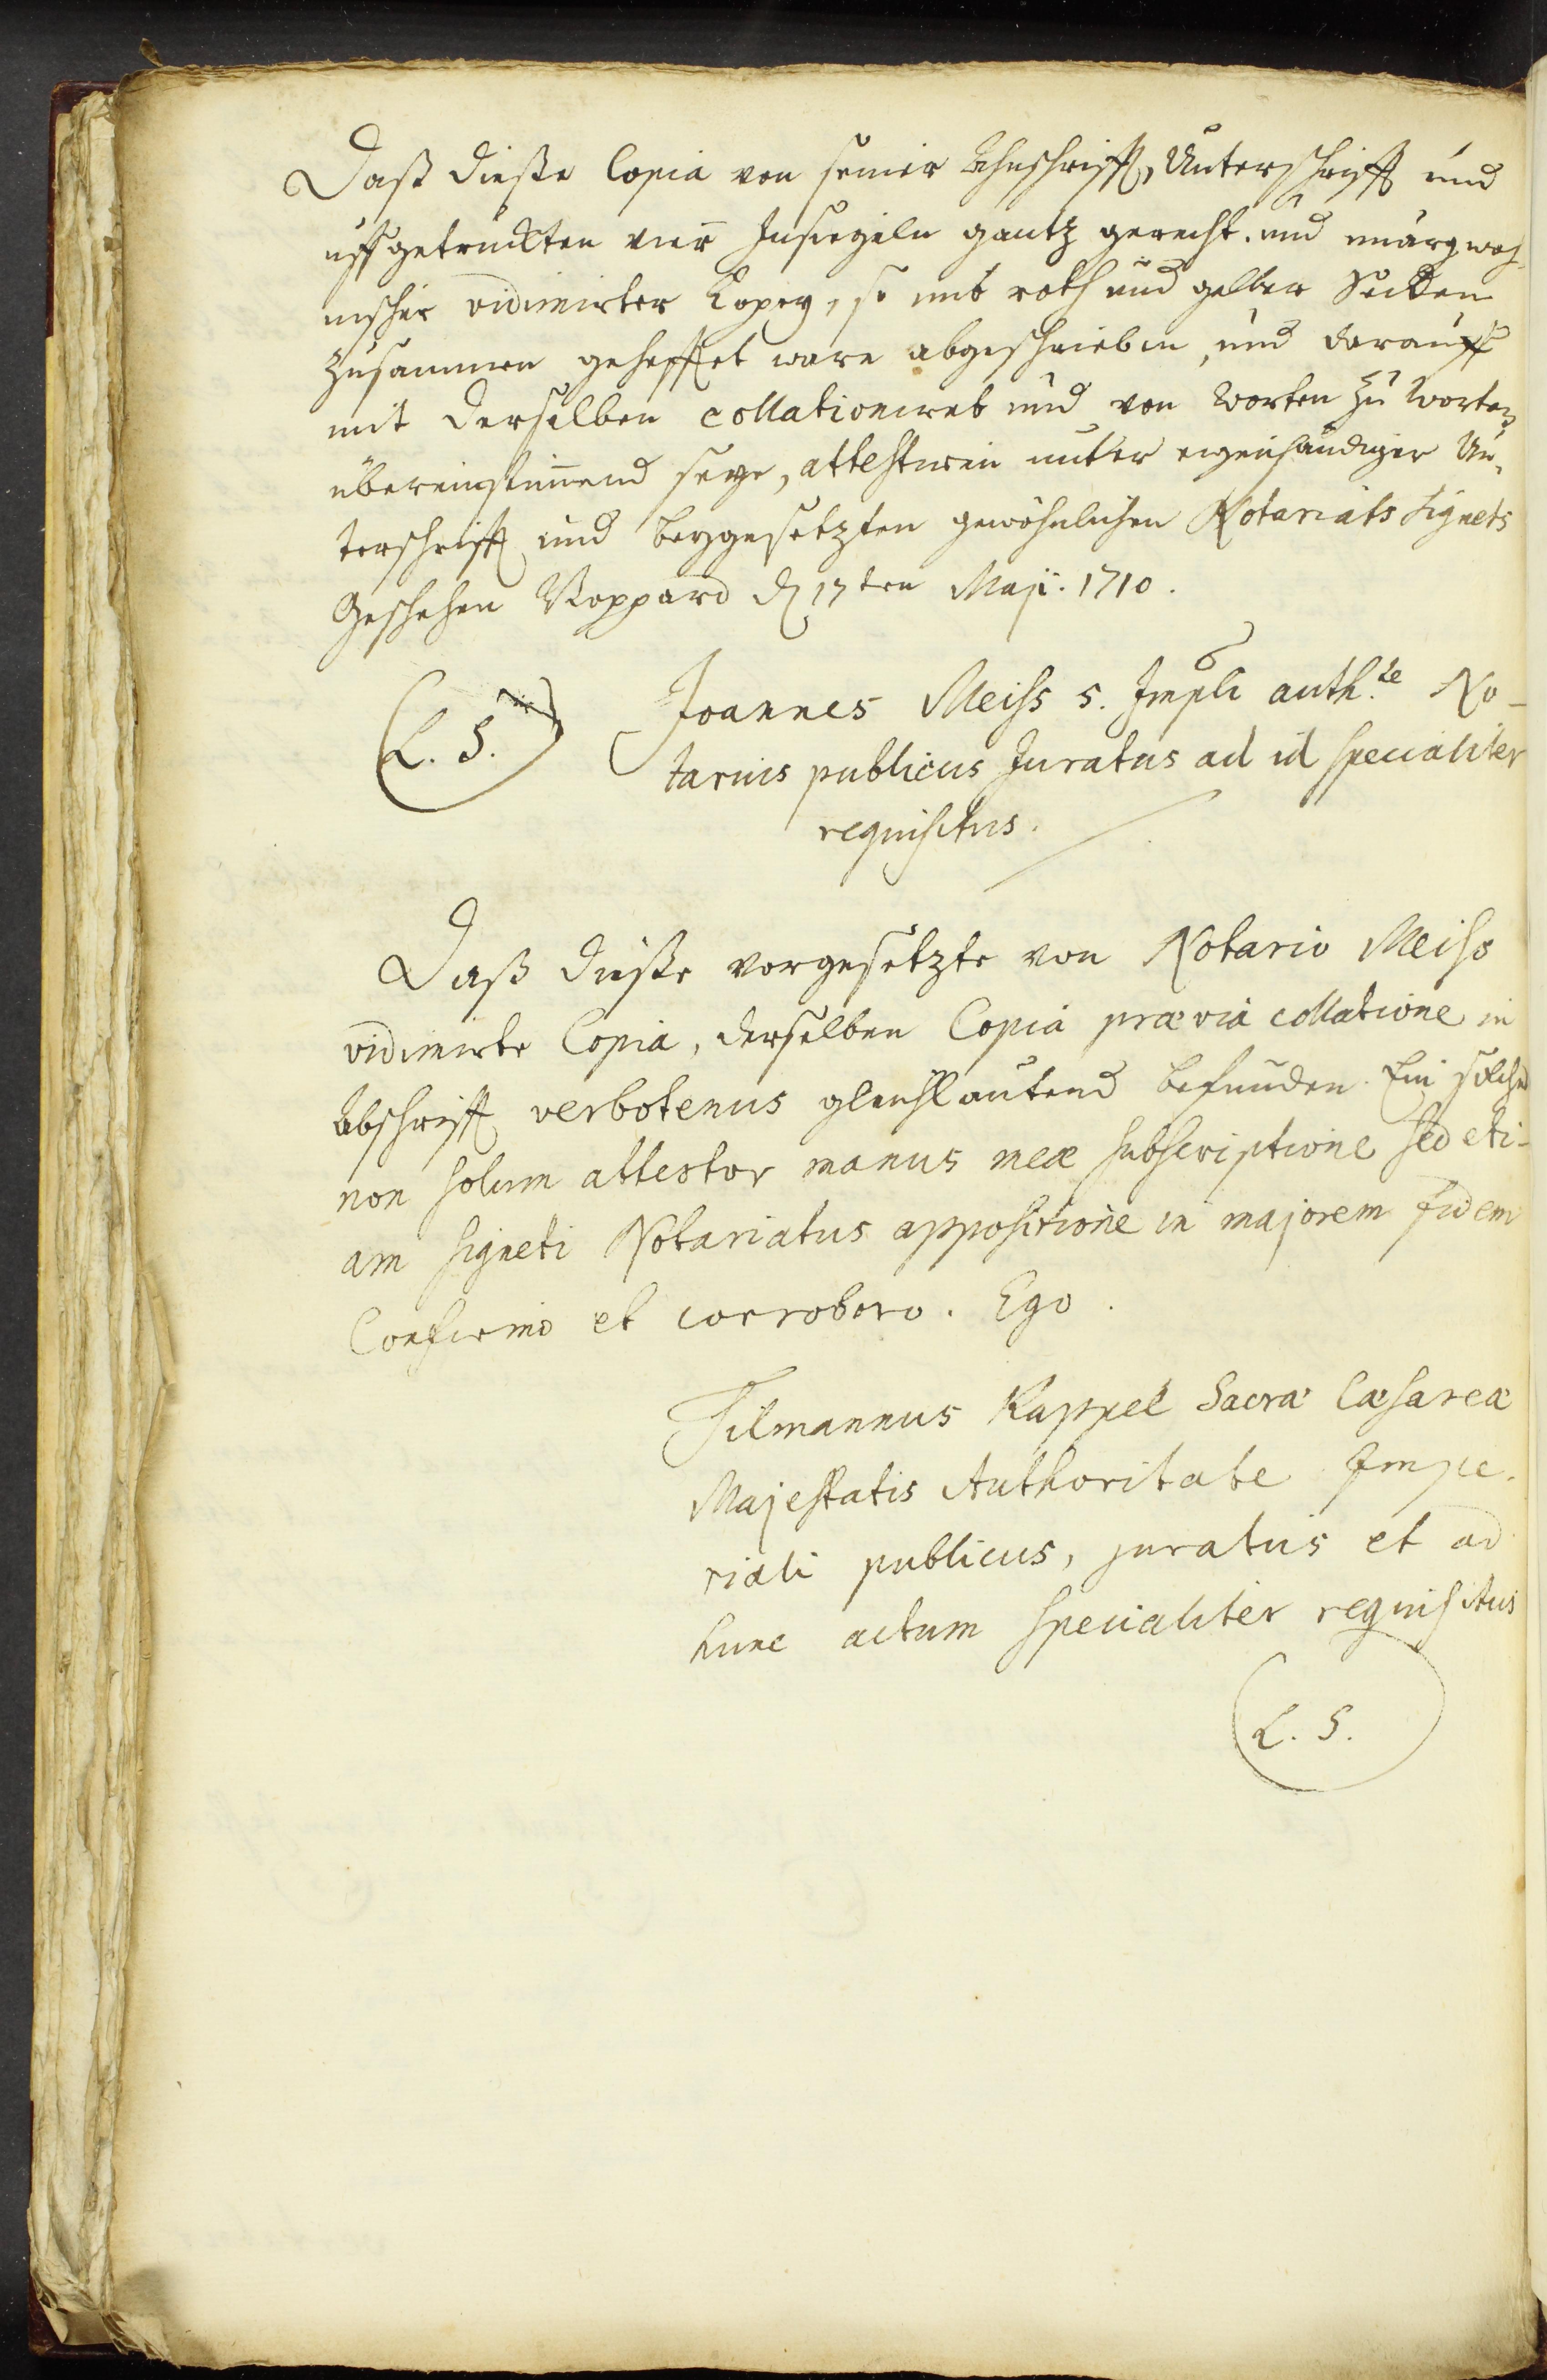 Daß dieße Copia von seiner Ahnschrifft, Unterschrifft und
uffgetruckten vier Insiegeln gantz gerecht. und unargwoh-
nischer vidimirter Copey, so mit roth und gelber Seiden
zusammen gehefftet ware abgeschrieben, und darauff
mit derselben collationirt und von Worten zu Worten
übereinstimend seye, attestiren unter eigenhändiger Un-
terschrifft und beygesetzten gewöhnlichen Notariats Signets
Geschehen Boppard d 17ten Maji. 1710.
L. S.
Joannes Meiss S. Impli auth.te No-
tarius publicus Juratus ad id specialiter
requisitus.
Daß dieße vorgesetzte von Notario Meiss
vidimirte Copia, derselben Copia præviâ collatione in
Abschrifft verbotenus gleichlautend befunden. Ein solches
non solum attestor manus meæ subscriptione sed eti-
am signeti Notariatus appositione in majorem fidem
Confirmo et corroboro. Ego.
Tilmannus Kappel Sacræ Cæsareæ
Majestatis Authoritate Impe-
riali publicus, juratus et ad
hunc actum specialiter requisitus
L. S.